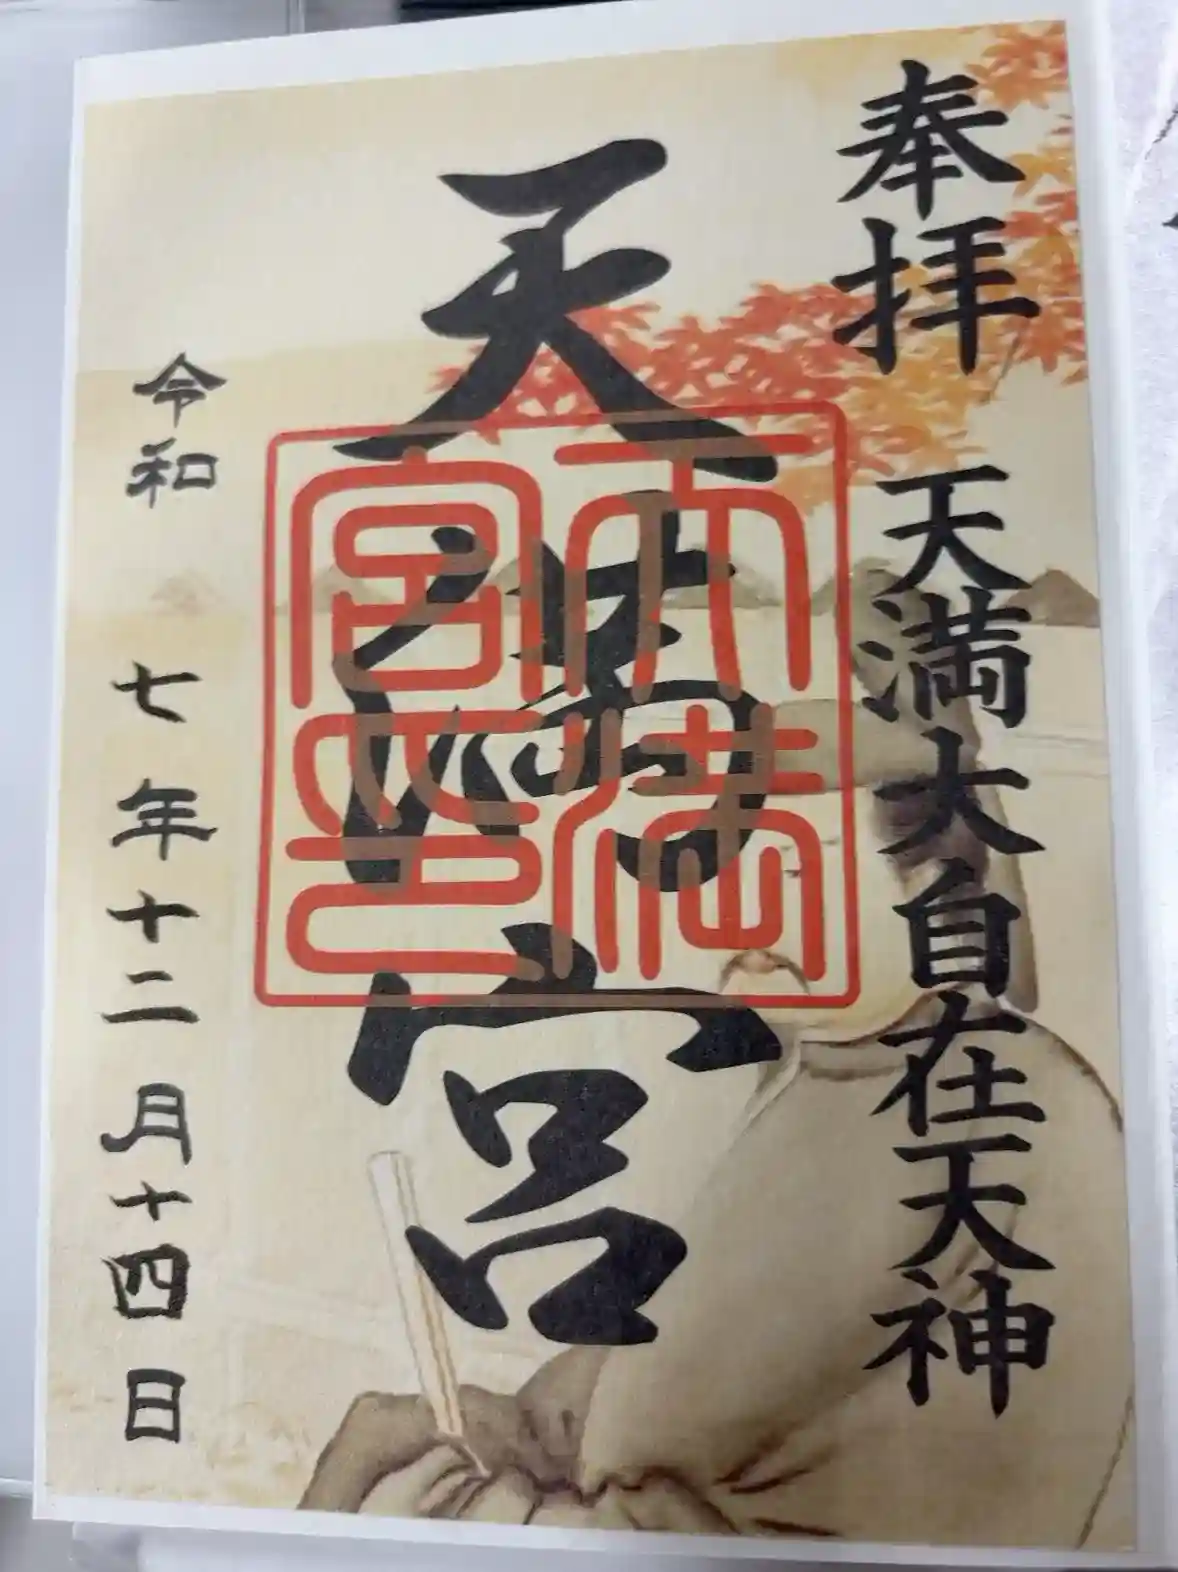 奉拝 天満大自在天神
天満宮
天満宮印
令和七年十二月十四日